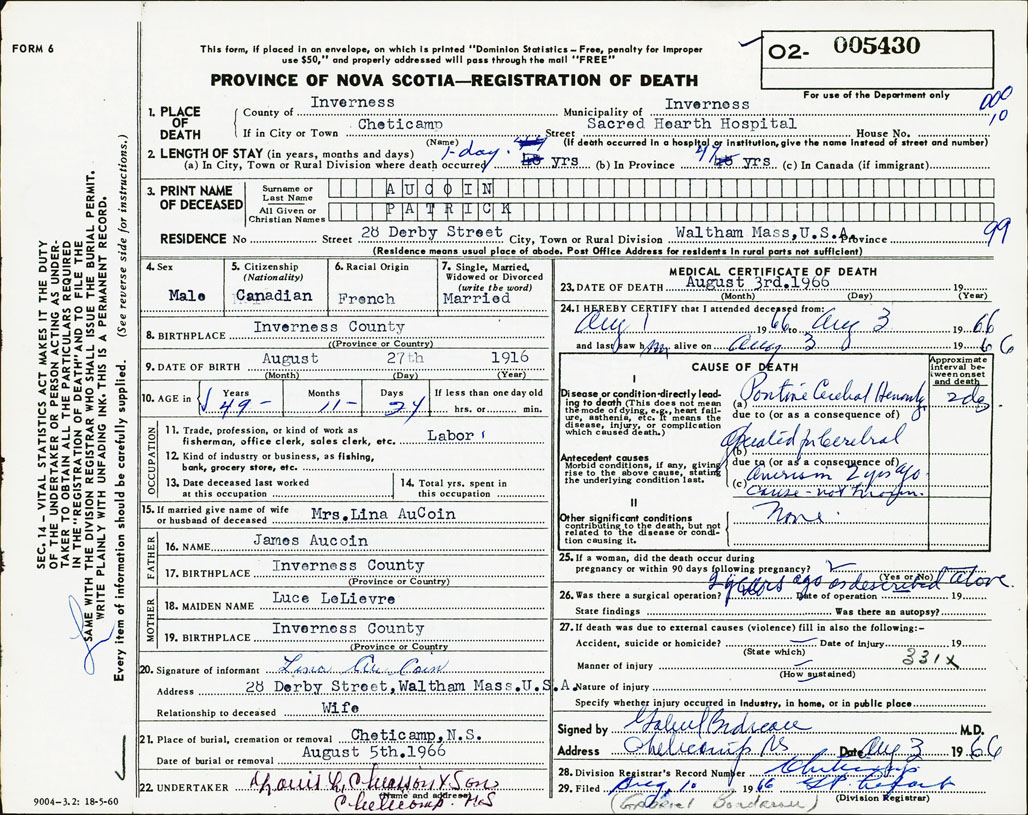 FORM 6
This form, if placed in an envelope, on which is printed "Dominion Statistics – Free, penalty for improper
use $50," and properly addressed will pass through the mail "FREE"
02- 005430
For use of the Department only
PROVINCE OF NOVA SCOTIA—REGISTRATION OF DEATH
000
10
1. PLACE OF DEATH
County of Inverness Municipality of Inverness
If in City or Town Cheticamp Street Sacred Hearth Hospital House No.
(Name) (If death occurred in a hospital or institution, give the name instead of street and number)
2. LENGTH OF STAY (in years, months and days)
(a) In City, Town or Rural Division where death occurred 1-day. yrs (b) In Province 47 yrs (c) In Canada (if immigrant)
3. PRINT NAME OF DECEASED
Surname or Last Name AUCOIN
All Given or Christian Names PATRICK
RESIDENCE No Street 28 Derby Street City, Town or Rural Division Waltham Mass,U.S.A. Province
99
(Residence means usual place of abode. Post Office Address for residents in rural parts not sufficient)
4. Sex Male
5. Citizenship (Nationality) Canadian
6. Racial Origin French
7. Single, Married, Widowed or Divorced (write the word) Married
8. BIRTHPLACE Inverness County
(Province or County)
9. DATE OF BIRTH August 27th 1916
(Month) (Day) (Year)
10. AGE in Years 49 - Months 11 - Days 24 If less than one day old hrs. or min.
OCCUPATION
11. Trade, profession, or kind of work as fisherman, office clerk, sales clerk, etc. Labor
12. Kind of industry or business, as fishing, bank, grocery store, etc.
13. Date deceased last worked at this occupation
14. Total yrs. spent in this occupation
15. If married give name of wife or husband of deceased Mrs.Lina AuCoin
FATHER
16. NAME James Aucoin
17. BIRTHPLACE Inverness County
(Province or County)
MOTHER
18. MAIDEN NAME Luce LeLievre
19. BIRTHPLACE Inverness County
(Province or County)
20. Signature of informant Lina Au Coin
Address 28 Derby Street,Waltham Mass.U.S.A.
Relationship to deceased Wife
21. Place of burial, cremation or removal Cheticamp,N.S.
Date of burial or removal August 5th.1966
22. UNDERTAKER Louis L. Chiasson & Son
(Name and address) Cheticamp. N.S
MEDICAL CERTIFICATE OF DEATH
23. DATE OF DEATH August 3rd.1966 19
(Month) (Day) (Year)
24. I HEREBY CERTIFY that I attended deceased from:
Aug 1 1966 to Aug 3 1966
and last saw him alive on Aug 3 1966
CAUSE OF DEATH
Approximate interval between onset and death
I
Disease or condition directly leading to death (This does not mean the mode of dying, e.g., heart failure, asthenia, etc. It means the disease, injury, or complication which caused death.)
(a) Pontine Cerebral Hemorrhg 2 dag
due to (or as a consequence of)
Antecedent causes
Morbid conditions, if any, giving rise to the above cause, stating the underlying condition last.
(b) Operated for Cerebral
due to (or as a consequence of)
(c) Anurism 2 yrs ago
Cause - not known.
II
Other significant conditions contributing to the death, but not related to the disease or condition causing it.
None.
25. If a woman, did the death occur during pregnancy or within 90 days following pregnancy?
(Yes or No)
2 years ago as described above
26. Was there a surgical operation? Date of operation 19
State findings Was there an autopsy?
27. If death was due to external causes (violence) fill in also the following:-
Accident, suicide or homicide? Date of injury 19
(State which)
331x
Manner of injury
(How sustained)
Nature of injury
Specify whether injury occurred in industry, in home, or in public place
Signed by M.D.
Address Cheticamp NS Date Aug 3 1966
28. Division Registrar's Record Number
29. Filed Aug. 10 1966
(Division Registrar)
(Gabriel Boudreau)
SEC. 14 – VITAL STATISTICS ACT MAKES IT THE DUTY
OF THE UNDERTAKER OR PERSON ACTING AS UNDER-
TAKER TO OBTAIN ALL THE PARTICULARS REQUIRED
IN THE "REGISTRATION OF DEATH" AND TO FILE THE
SAME WITH THE DIVISION REGISTRAR WHO SHALL ISSUE THE BURIAL PERMIT.
WRITE PLAINLY WITH UNFADING INK. THIS IS A PERMANENT RECORD.
Every item of information should be carefully supplied. (See reverse side for instructions.)
9004-3.2: 18-5-60